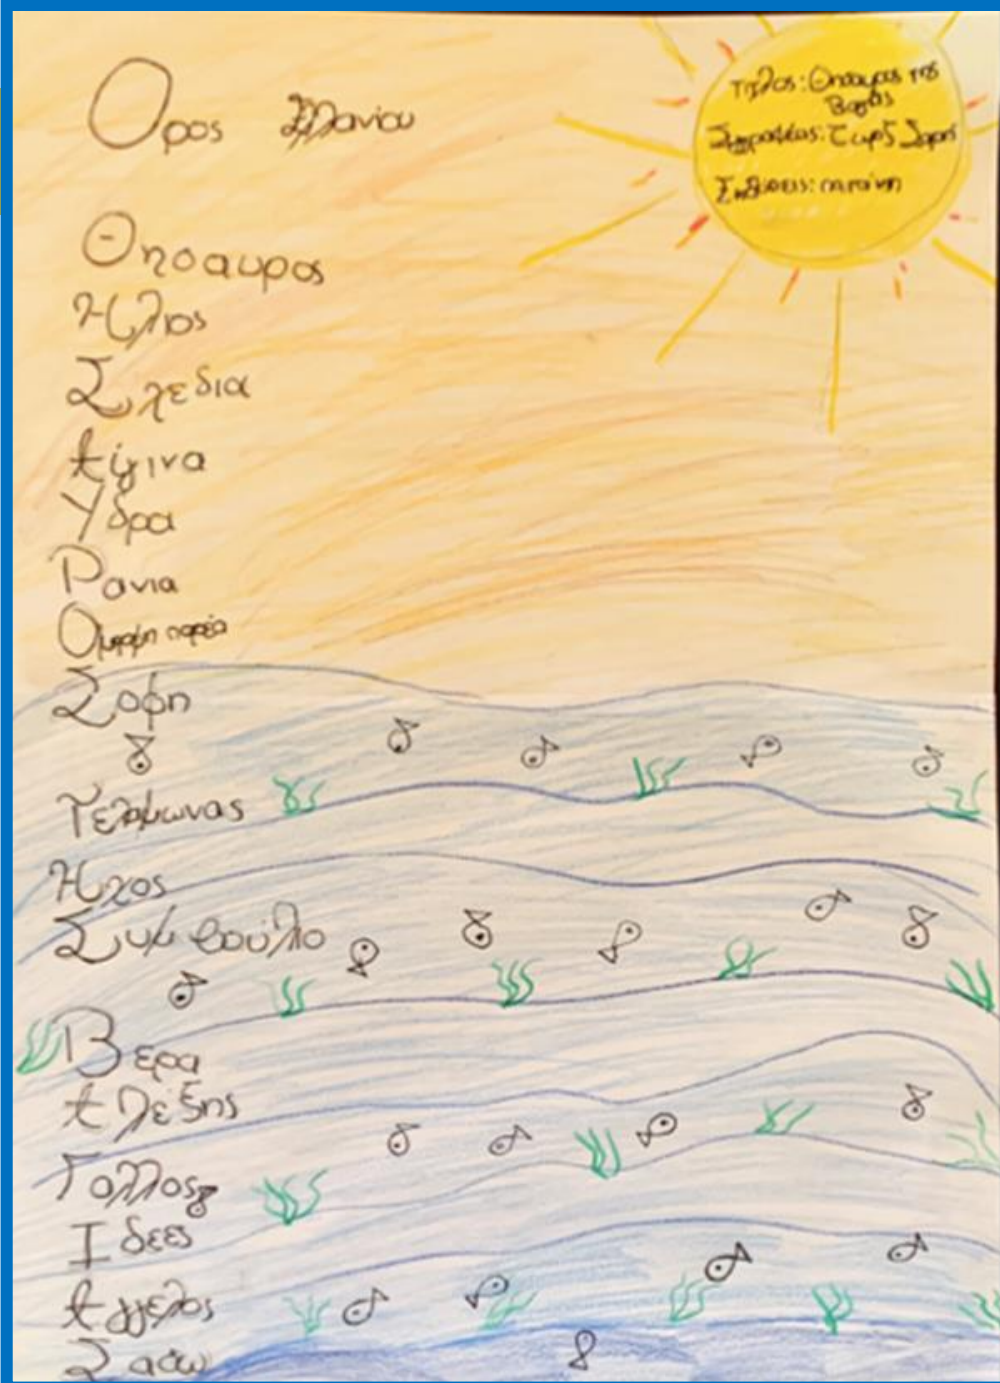 Ορος Ελλανίου
Τιτλος: Θησαυρος της
Βαγιας
Συγγραφέας: Ζωρζ Σαρη
Εκδοσεις: πατάκη
Θησαυρος
Ηλιος
Σχεδια
Αίγινα
Υδρα
Ρανια
Ομορφη παρέα
Σοφη
Τελαμωνας
Ηχος
Συμβούλιο
Βερα
Αλέξης
Γαλλος
Ιδεες
Αγγελος